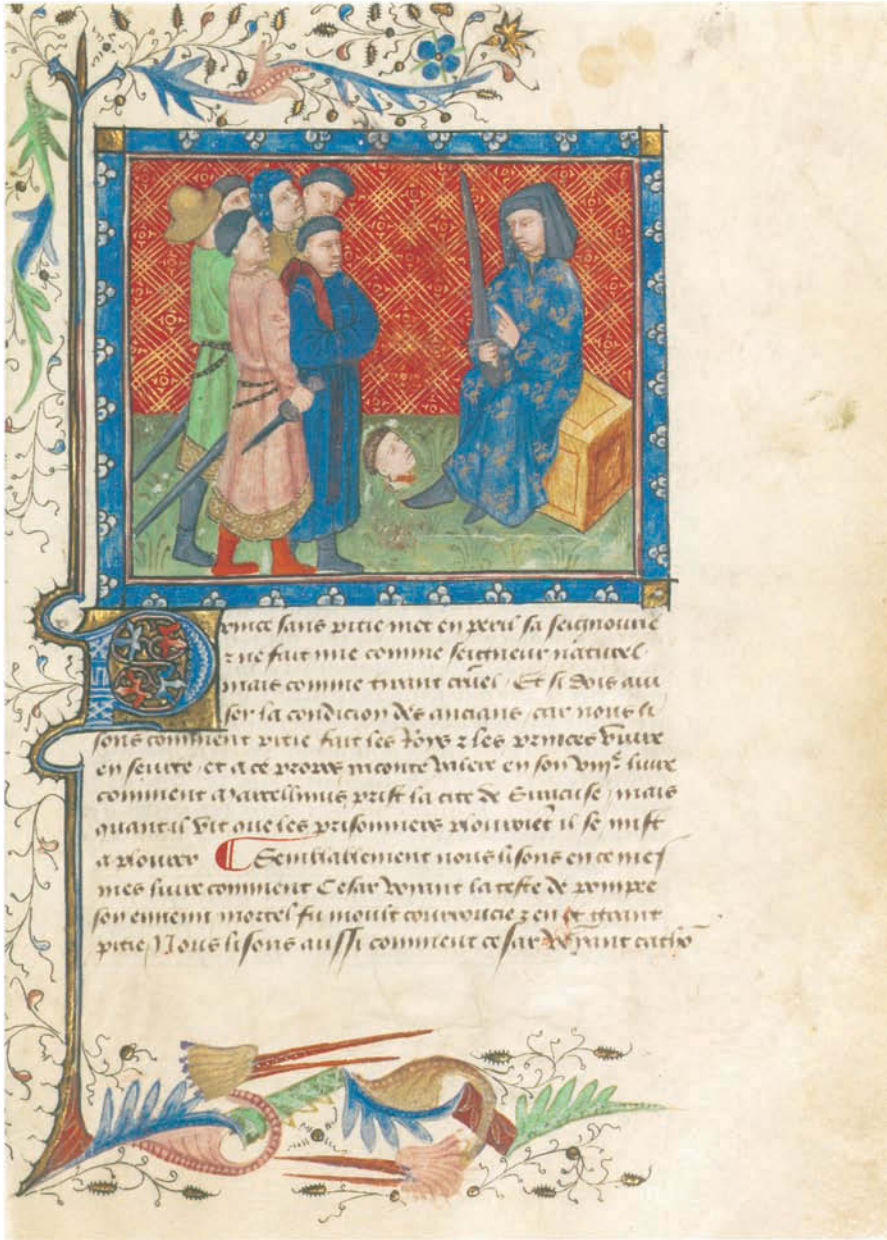 Prince sans pitie met en peril sa seignourie
z ne fait mie comme seigneur naturel
mais comme tirant cruel / Et si dois aui
ser la condicion des ancians / car nous li
sons comment pitie fait les Roys z les princes viure
en seurte / et a ce propos raconte Valere en son vme liure
comment Marcellinus prist la cite de Siracuse / mais
quant il vit que les prisonniers plouroiet il se mist
a plourer Semblablement nous lisons en ce mes
mes liure comment Cesar voyant la teste de pompee
son ennemi mortel fu moult courrouciez en ot grant
pitie / Nous lisons aussi comment cesar voyant catho